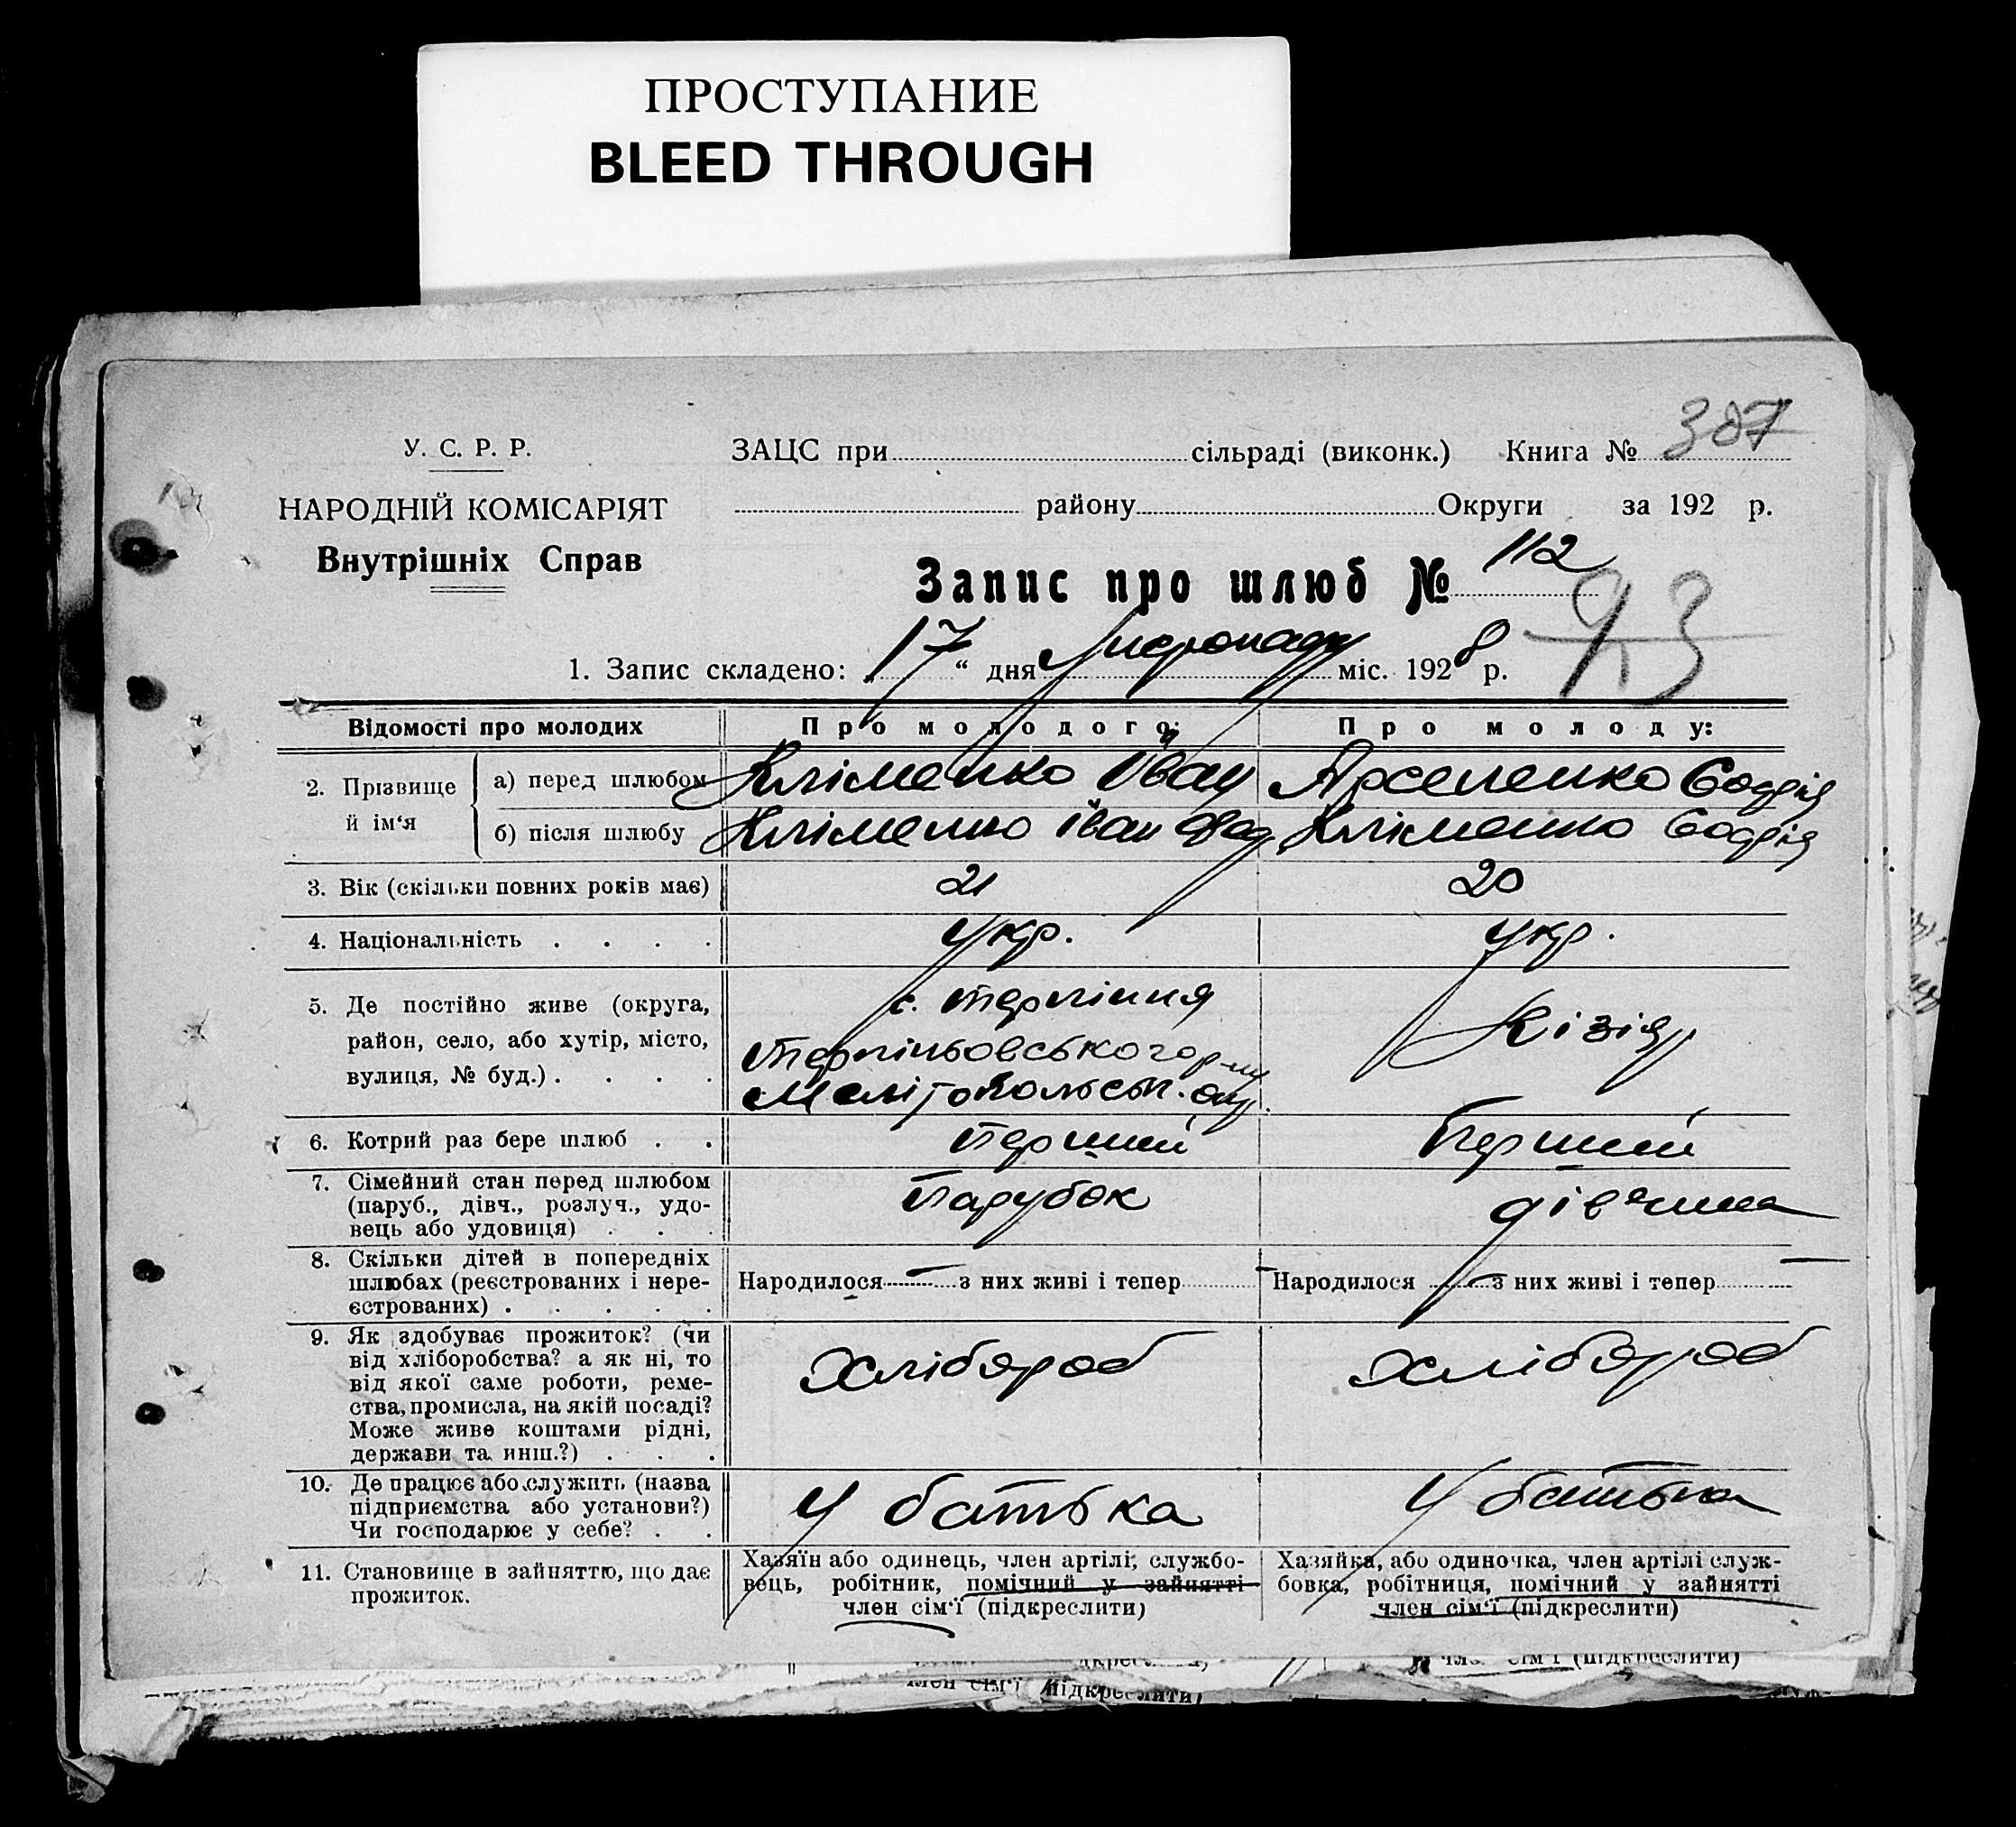 ПРОСТУПАНИЕ
BLEED THROUGH
У. С. Р. Р.
НАРОДНІЙ КОМІСАРІЯТ
Внутрішніх Справ
ЗАЦС при сільраді (виконк.) Книга № 387
району Округи за 192 р.
Запис про шлюб № 112
93
1. Запис складено: 17 " дня Листопаду міс. 1928 р.
Відомості про молодих Про молодого: Про молоду:
2. Прізвище й ім'я
а) перед шлюбом Кліменко Іван Арсененко
б) після шлюбу Кліменко Іван Кліменко
3. Вік (скільки повних років має) 21 20
4. Національність . . . . Укр. Укр.
5. Де постійно живе (округа,
район, село, або хутір, місто,
вулиця, № буд.) . . . .
с. Терпіння
Терпіньовського р-ну
Мелітопольськ. окр.
Кізіяр
6. Котрий раз бере шлюб . . Перший Перший
7. Сімейний стан перед шлюбом
(паруб., дівч., розлуч., удо-
вець або удовиця) . . .
Парубок дівчина
8. Скільки дітей в попередніх
шлюбах (реєстрованих і нере-
єстрованих) . . . . .
Народилося — з них живі і тепер — Народилося — з них живі і тепер —
9. Як здобуває прожиток? (чи
від хліборобства? а як ні, то
від якої саме роботи, реме-
ства, промисла, на якій посаді?
Може живе коштами рідні,
держави та инш.?) . . .
Хлібороб Хлібороб
10. Де працює або служить (назва
підприємства або установи?)
Чи господарює у себе? . .
У батька У батька
11. Становище в зайняттю, що дає
прожиток.
Хазяїн або одинець, член артілі; службо-
вець, робітник, помічний у зайнятті
член сім'ї (підкреслити)
Хазяйка, або одиночка, член артілі служ-
бовка, робітниця, помічний у зайнятті
член сім'ї (підкреслити)
член сім'ї (підкреслити)
сім'ї (підкреслити)